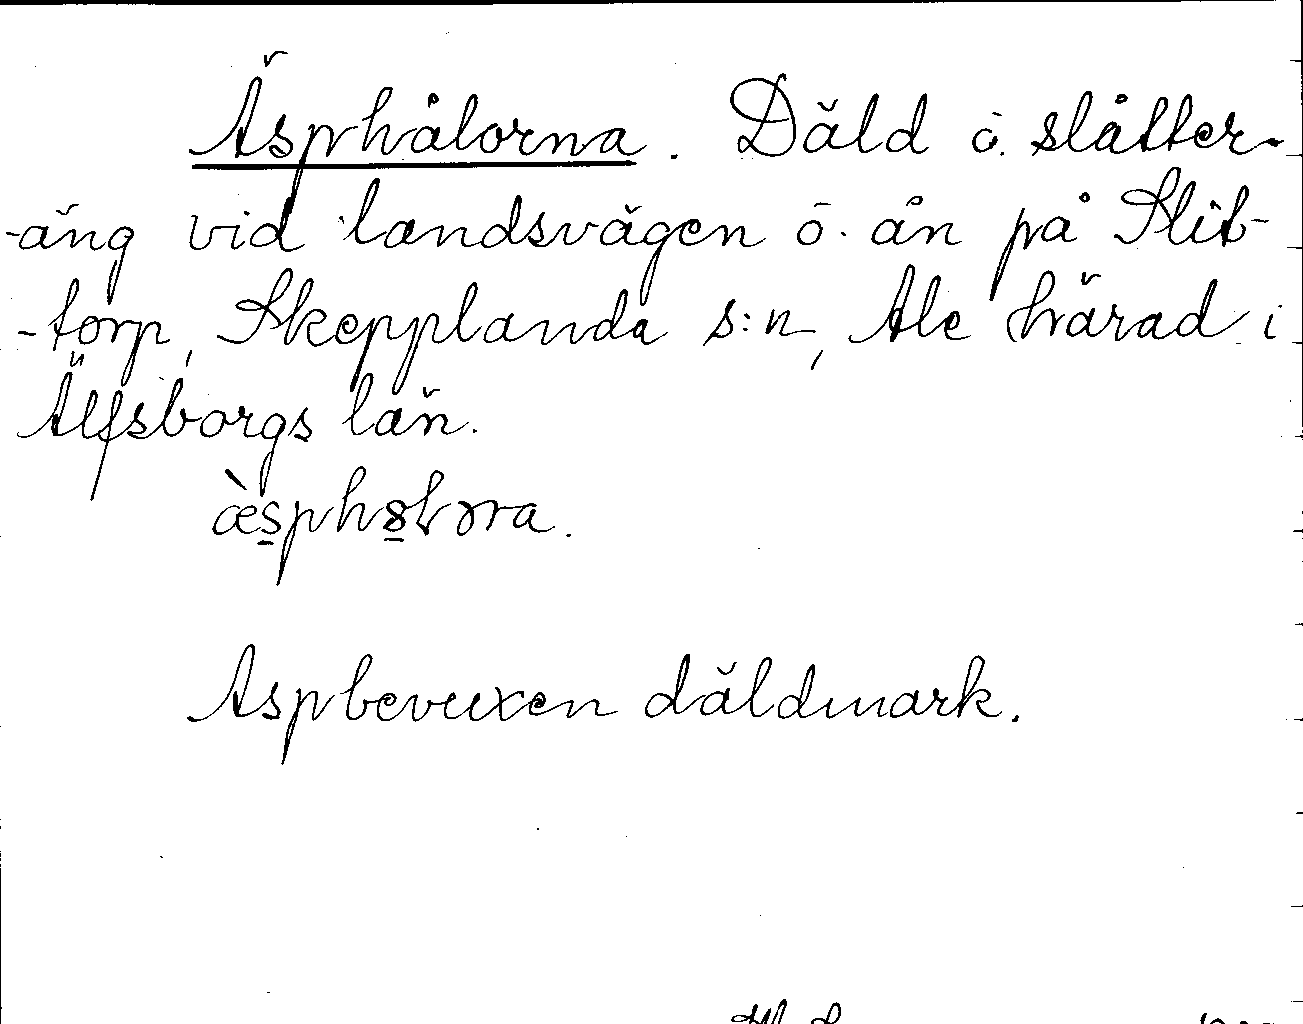 Äsphålorna. Däld o. slåtter-
-äng vid landsvägen ö. ån på Slit-
-torp, Skepplanda s:n, Ale härad i
Älfsborgs län.
Aspbevuxen däldmark.